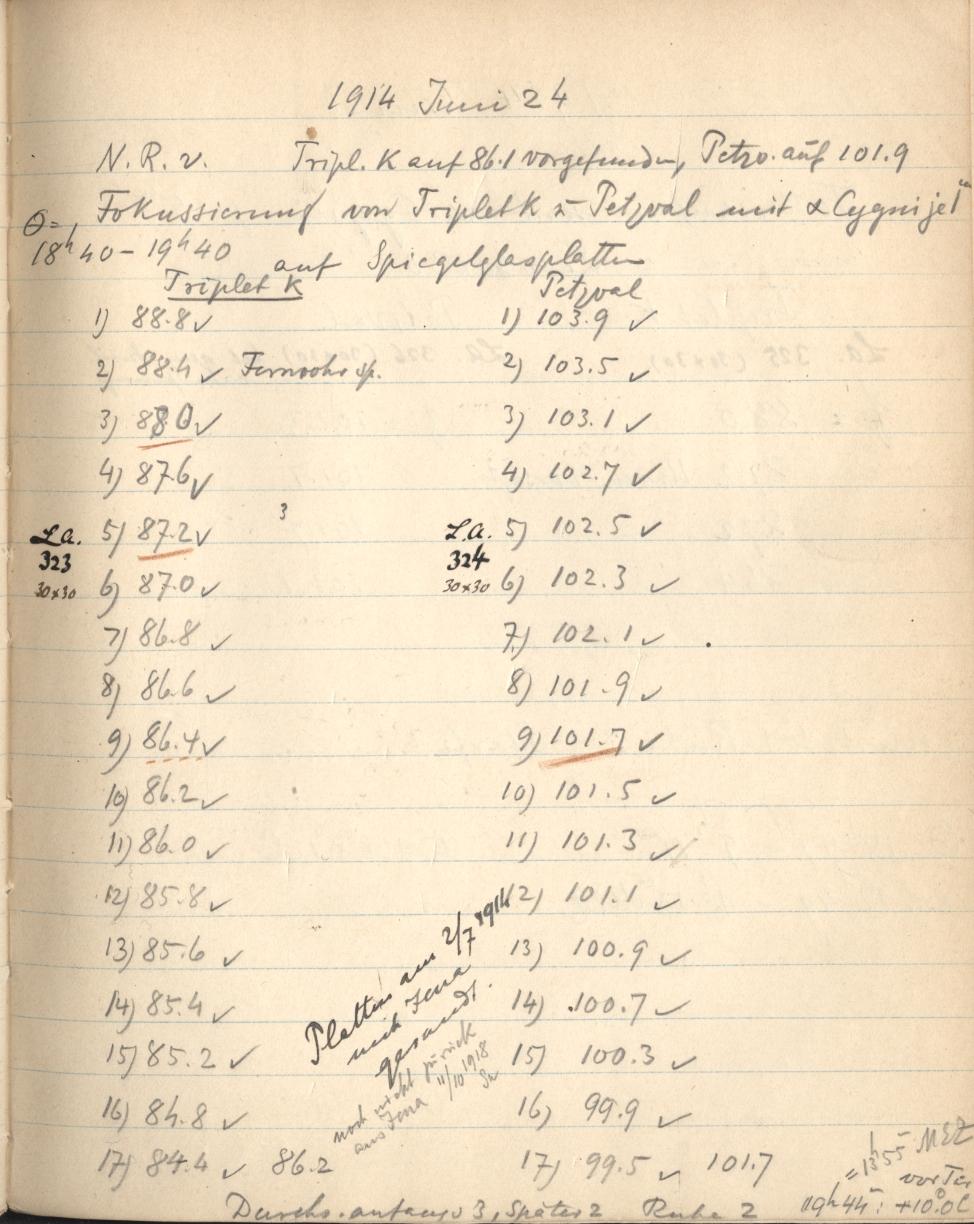 1914 Juni 24
N. R. v. Tripl. K auf 86.1 vorgefunden, Petzv. auf 101.9
Fokussierung von Triplet K u. Petzval mit α Cygni je 1ᵐ
θ=
18ʰ40 – 19ʰ40
auf Spiegelglasplatten
Triplet K Petzval
1) 88.8 ✓ 1) 103.9 ✓
2) 88.4 ✓ 2) 103.5 ✓
3) 88.0 ✓ 3) 103.1 ✓
4) 87.6 ✓ 4) 102.7 ✓
3
L.A. 5) 87.2 ✓ L.A. 5) 102.5 ✓
323 324
30×30 6) 87.0 ✓ 30×30 6) 102.3 ✓
7) 86.8 ✓ 7) 102.1 ✓
8) 86.6 ✓ 8) 101.9 ✓
9) 86.4 ✓ 9) 101.7 ✓
10) 86.2 ✓ 10) 101.5 ✓
11) 86.0 ✓ 11) 101.3 ✓
12) 85.8 ✓ 12) 101.1 ✓
13) 85.6 ✓ 13) 100.9 ✓
14) 85.4 ✓ 14) 100.7 ✓
15) 85.2 ✓ 15) 100.3 ✓
16) 84.8 ✓ 16) 99.9 ✓
17) 84.4 ✓ 86.2 17) 99.5 ✓ 101.7
Platten am 2/7 1914
nach Jena
gesandt.
noch nicht zurück
aus Jena 11/10 1918
= 13ʰ55ᵐ MEZ
19ʰ44ᵐ: +10.0C
Durchs. anfangs 3, später 2 Ruhe 2